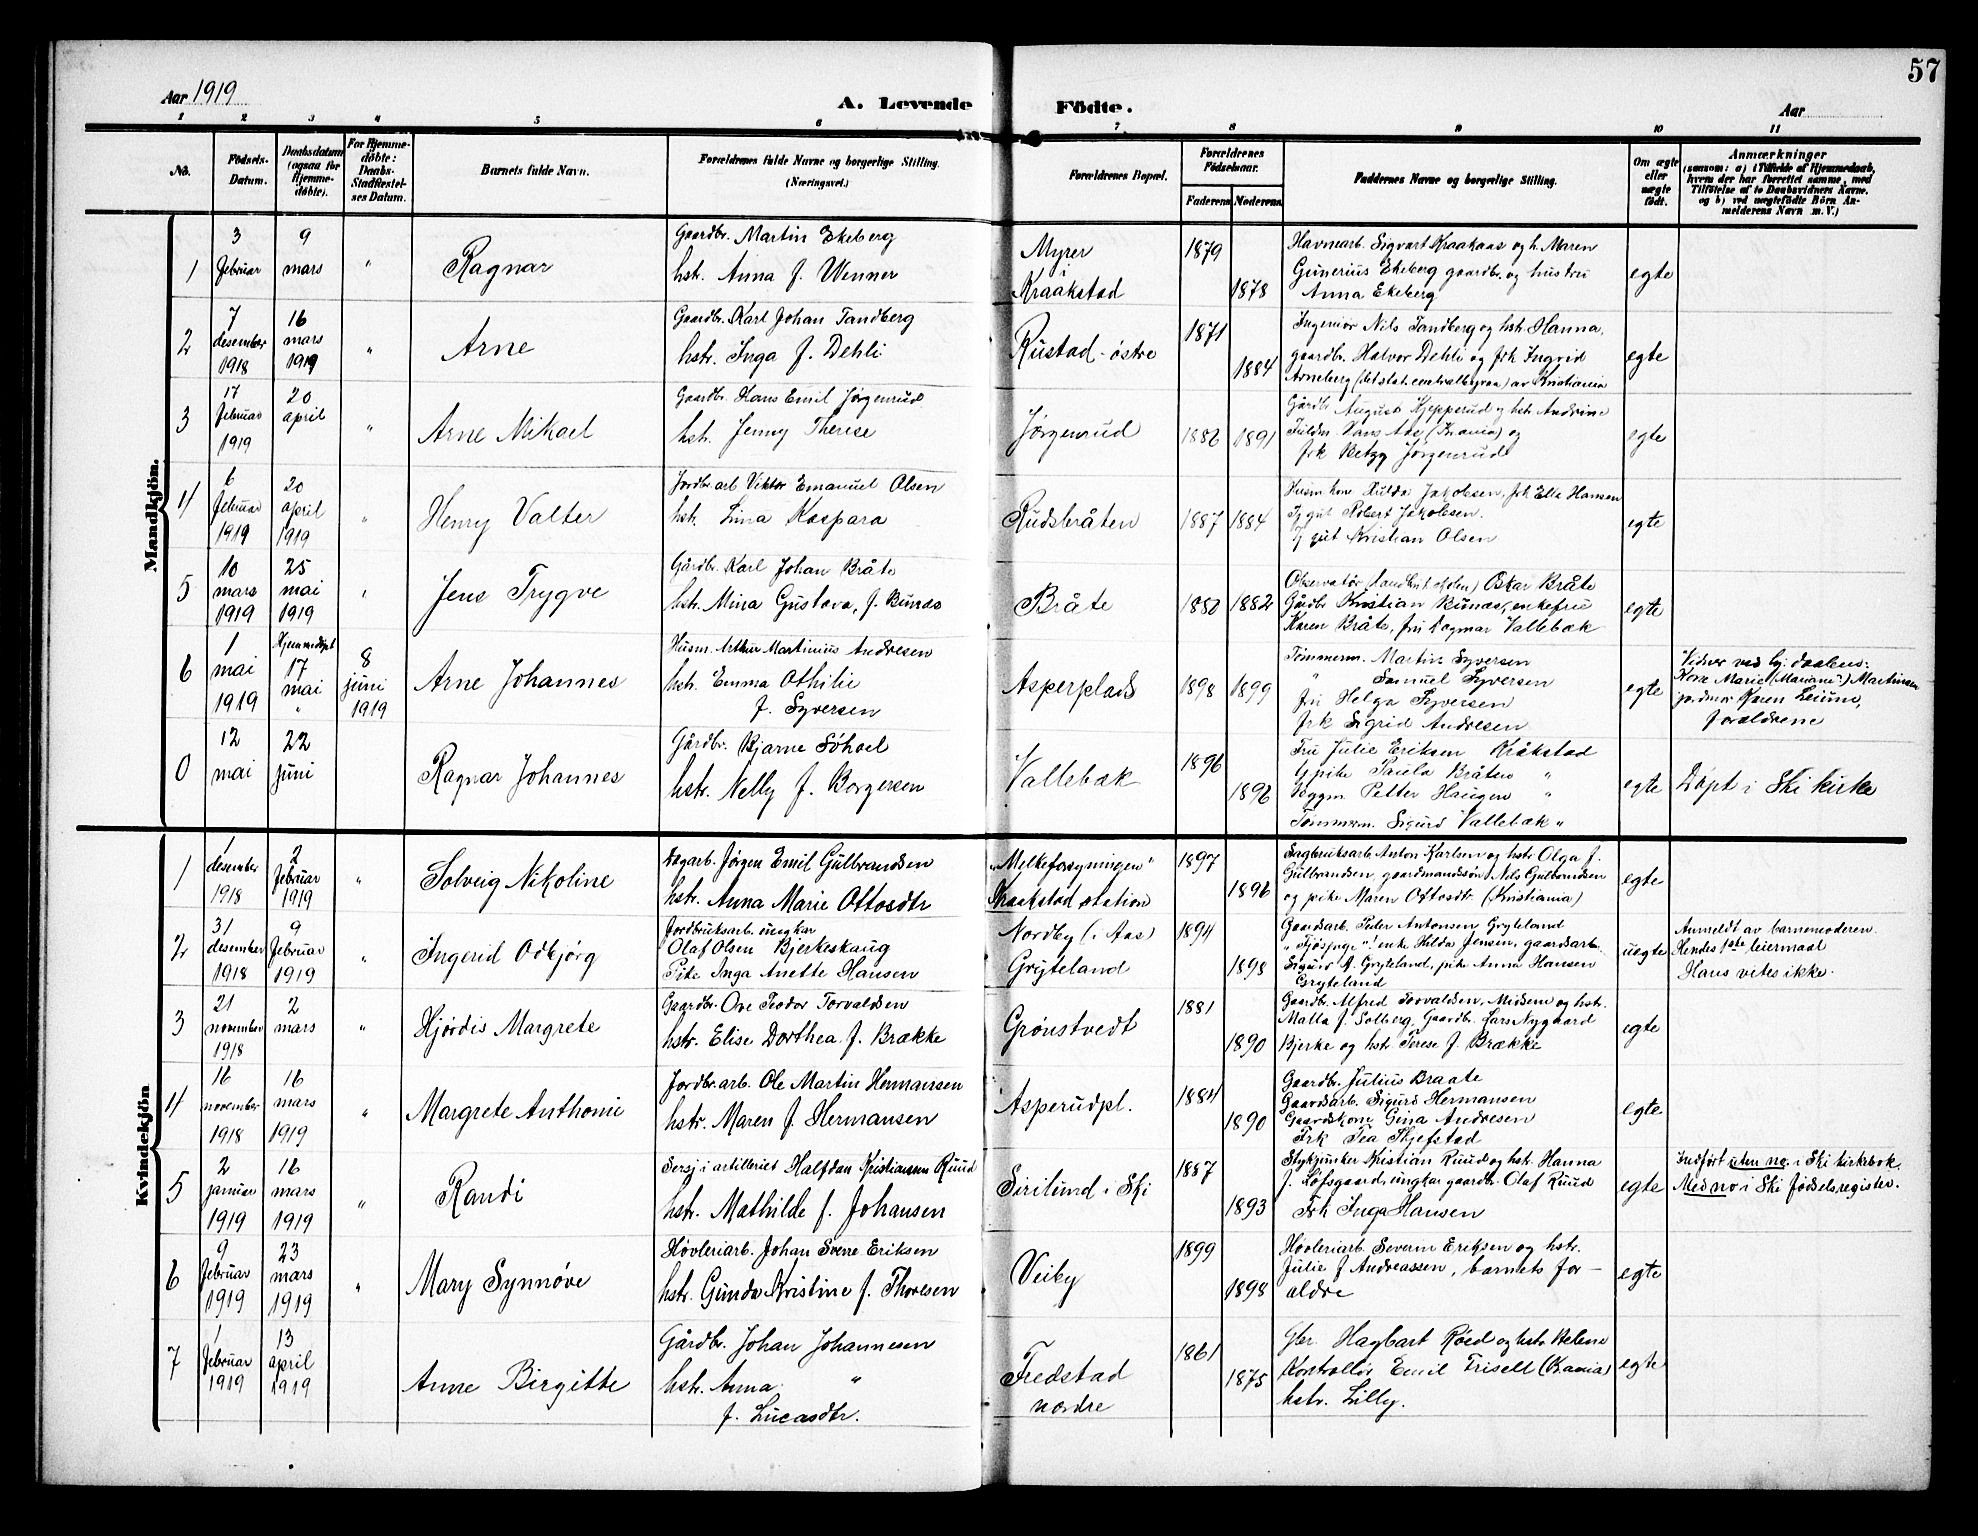 57
Aar 1919
A. Levende Födte.
Aar
1 2 3 4 5 6 7 8 9 10 11
No.
Födsels-
Datum.
Daabsdatum
(ogsaa for
Hjemme-
döbte).
For Hjemme-
döbte:
Daabs-
Stadfæstel-
ses Datum.
Barnets fulde Navn.
Forældrenes fulde Navne og borgerlige Stilling.
(Næringsvei.)
Forældrenes Bopæl.
Forældrenes
Födselsaar.
Faderens Moderens
Faddernes Navne og borgerlige Stilling.
Om ægte
eller
uægte
födt.
Anmærkninger
(saasom: a) i Tilfælde af Hjemmedaab,
hvem der har forrettet samme, med
Tilföielse af to Daabsvidners Navne,
og b) ved uægtefödte Börn An-
melderens Navn m. V.)
Mandkjön.
1
3
februar
9
mars
"
Ragnar
Gaardbr. Martin Ekeberg
hst. Anna f. Wenner
Myrer
i
Kraakstad
1879
1878
Havnearb. Sigvart Kraakaas og h. Maren
Gunerius Ekeberg gaardbr. og hustru
Anna Ekeberg
egte
2
7
desember
1918
16
mars
1919
"
Arne
Gaardbr. Karl Johan Tandberg
hstr. Inga f. Dehli
Rustad-østre
1871
1884
Ingeniør Nils Tandberg og hst. Hanna,
gaardbr. Halvor Dehli og frk Ingrid
Arneberg (det stat. centralbyraa) av Kristiania
egte
3
17
februar
1919
20
april
"
Arne Mikael
Gaardbr. Hans Emil Jørgenrud
hst. Jenny Therese
Jørgenrud
1882
1891
Gårdbr August Kjepperud og hst. Andrine
frk Betzy Jørgenrud
egte
4
6
februar
1919
20
april
1919
"
Henry Valter
Jordbr.arb Viktor Emanuel Olsen
hst. Lina Kaspara
Rudsbråten
1887
1884
Husm kone Hulda Jakobsen, frk Ella Hansen
Tj gut Robert Jakobsen.
Tj gut Kristian Olsen
egte
5
10
mars
1919
25
mai
1919
"
Jens Trygve
Gårdbr. Karl Johan Bråte
hstr. Mina Gustava, f. Bunæs
Bråte
1882
1882
Oskar Bråte
Gårdbr Kristian Bunæs, enkefru
Karen Bråte, fru Dagmar Vallebæk
egte
6
1
mai
1919
Hjemmedøpt
17
mai
"
8
juni
1919
Arne Johannes
Husm. Arthur Martinius Andresen
hst. Emma Othilie
f. Syversen
Asperplads
1898
1899
Tømmerm. Martin Syversen
" Samuel Syversen
fru Helga Syversen
frk Sigrid Andresen
egte
Vidner ved hj. daaben:
Kone Marie (Mariane?) Martinsen
jordmor Karen Leiume,
forældrene
0
12
mai
22
juni
Ragnar Johannes
Gårdbr. Bjarne Søhoel
hstr. Nelly f. Borgersen
Vallebæk
1896
1896
Fru Julie Eriksen Kråkstad
Gpike Paula Bråten "
Byggm. Petter Haugen "
Tømmerm. Sigurd Vallebæk "
egte
Døpt i Ski kirke
Kvindekjön
1
1
desember
1918
2
februar
1919
"
Solveig Nikoline
Dagarb. Jørgen Emil Gulbrandsen
hst. Anna Marie Ottosdtr
"Melkeforsyningen"
Kraakstad station
1897
1896
Sagbruksarb. Anton Karlsen og hst. Olga f.
Gulbrandsen, gaardmandssøn Nils Gulbrandsen
og pike Maren Ottosdtr. (Kristiania)
egte
2
31
desember
1918
9
februar
1919
"
Ingerid Odbjørg
Jordbruksarb. ungkar
Olaf Olsen Bjerkeskaug
Pike Inga Anette Hansen
Nordby (i Aas)
Gryteland
1894
1898
Gaardsarb. Peder Antonsen Gryteland
enke Hilda Jensen, gaardsarb.
Sigurd A. Gryteland, pike Anna Hansen
Gryteland
uegte
Anmeldt av barnemoderen.
Hendes 1ste leiermaal
Hans vites ikke.
3
21
november
1918
2
mars
"
Hjørdis Margrete
Gaardbr. Ove Teodor Torvaldsen
hstr. Elise Dorthea f. Brække
Grønstvedt
1881
1890
Gaardbr. Alfred Torvaldsen, Midsem og hst.
Malla f. Solberg, Gaardbr. Lars Nygaard
Bjerke og hst. Terese f. Brække
egte
4
16
november
1918
16
mars
1919
"
Margrete Anthonie
Jordbr.arb. Ole Martin Hermansen
hstr. Maren f. Hermansen
Asperudpl.
1884
1890
Gaardbr. Julius Braate
Gaardsarb. Sigurd Hermansen
Gaardskone Gina Andresen
Frk Tea Skjefstad
egte
5
2
januar
1919
16
mars
1919
"
Randi
Sersj i artilleriet Halfdan Kristiansen Ruud
hstr. Mathilde f. Johansen
Sirilund i Ski
1887
1893
Stykjunker Kristian Ruud og hst. Hanna
f. Løfsgaard, ungkar gaardbr. Olaf Ruud
Frk Inga Hansen
egte
Indført uten no. i Ski kirkebok.
Med no i Ski fødselsregister.
6
9
februar
1919
23
mars
1919
"
Mary Synnøve
Høvleriarb. Johan Svenn Eriksen
hstr. Gunda Kristine f. Thoresen
Veiby
1899
1898
Høvleriarb. Severin Eriksen og hst.
Julie f Andreassen, barnets for-
ældre
egte
7
1
februar
1919
13
april
1919
Anne Birgitte
Gårdbr. Johan Johannesen
hstr. Anna "
f. Lucasdtr.
Fredstad
nordre
1861
1875
Gbr. Hagbart Røed og hst. Helene
Kontrollør Emil Frisell (Krania)
hstr. Lilly.
egte